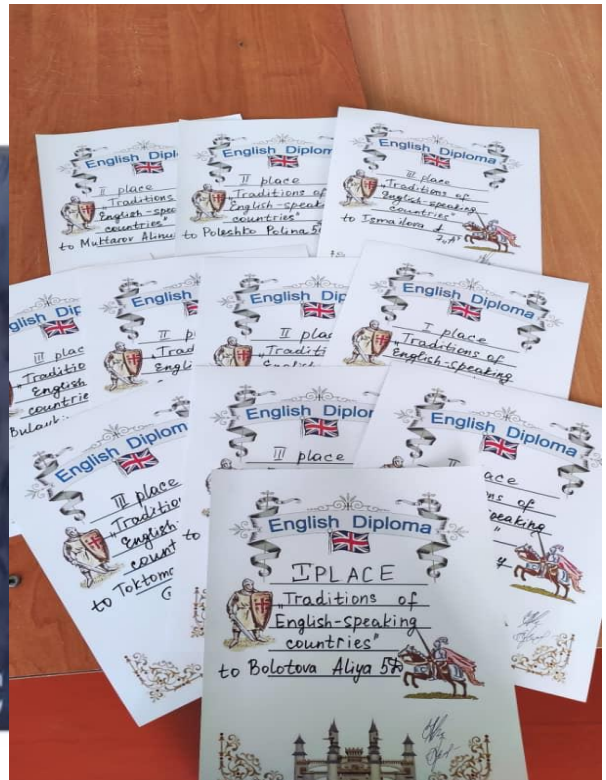 English
II place
"Traditions
English-
countries"
to Muktarov
English Diploma
II place
"Traditions of
English-speaking
countries"
to Poleshko Polina
English Diploma
III place
"Traditions of
English-speaking
countries"
to Ismailova
English
III
"Traditio
English
countrie
English
II
"Trad
Engl
English Dip
II plac
"Traditi
English
English Diploma
I place
"Traditions of
English-speaking
English
III place
"Tradition
English-
count
to Toktom
English Diplom
II place
to
English Diploma
ace
ns of
speaking
English Diploma
I PLACE
"Traditions of
English-speaking
countries"
to Bolotova Aliya